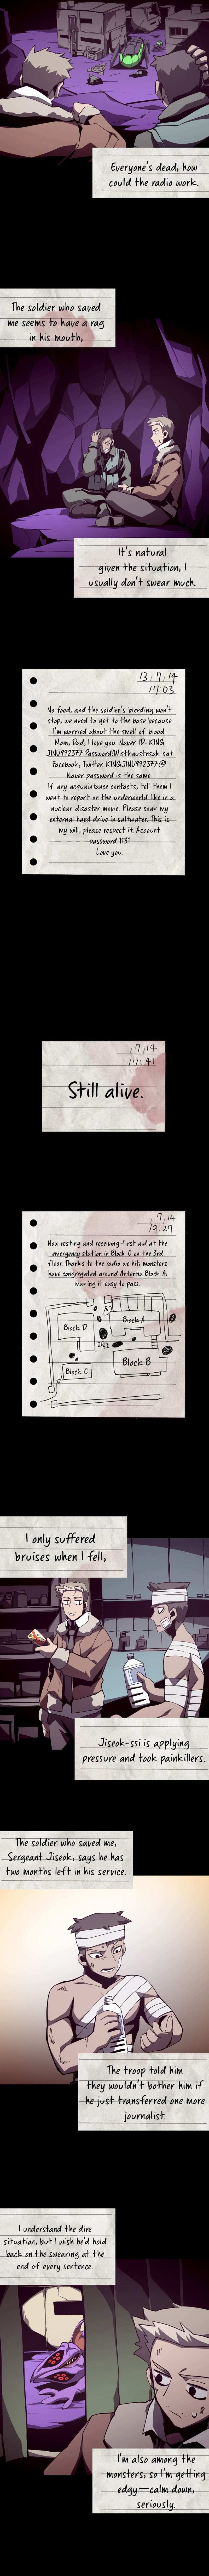 Everyone's dead, how
could the radio work.
The soldier who saved
me seems to have a rag
in his mouth,
It's natural
given the situation, I
usually don't swear much.
13/7/14
17:03
No food, and the soldier's bleeding won't
stop, we need to get to the base because
I'm worried about the smell of blood.
Mom, Dad, I love you. Naver ID: KING
JINU992377 Password:
Facebook, Twitter: KINGJINU992377@
Naver password is the same.
If any acquaintance contacts, tell them I
went to report on the underworld like in a
nuclear disaster movie. Please soak my
external hard drive in saltwater. This is
my will, please respect it. Account
password 1131
Love you.
/7/14
17:41
Still alive.
7/14
19:27
Now resting and receiving first aid at the
emergency station in Block C on the 3rd
floor. Thanks to the radio we hit, monsters
have congregated around Antenna Block A,
making it easy to pass.
Block D
Block A
Block C
Block B
I only suffered
bruises when I fell,
Jiseok-ssi is applying
pressure and took painkillers.
The soldier who saved me,
Sergeant Jiseok, says he has
two months left in his service.
The troop told him
they wouldn't bother him if
he just transferred one more
journalist.
I understand the dire
situation, but I wish he'd hold
back on the swearing at the
end of every sentence.
I'm also among the
monsters, so I'm getting
edgy—calm down,
seriously.